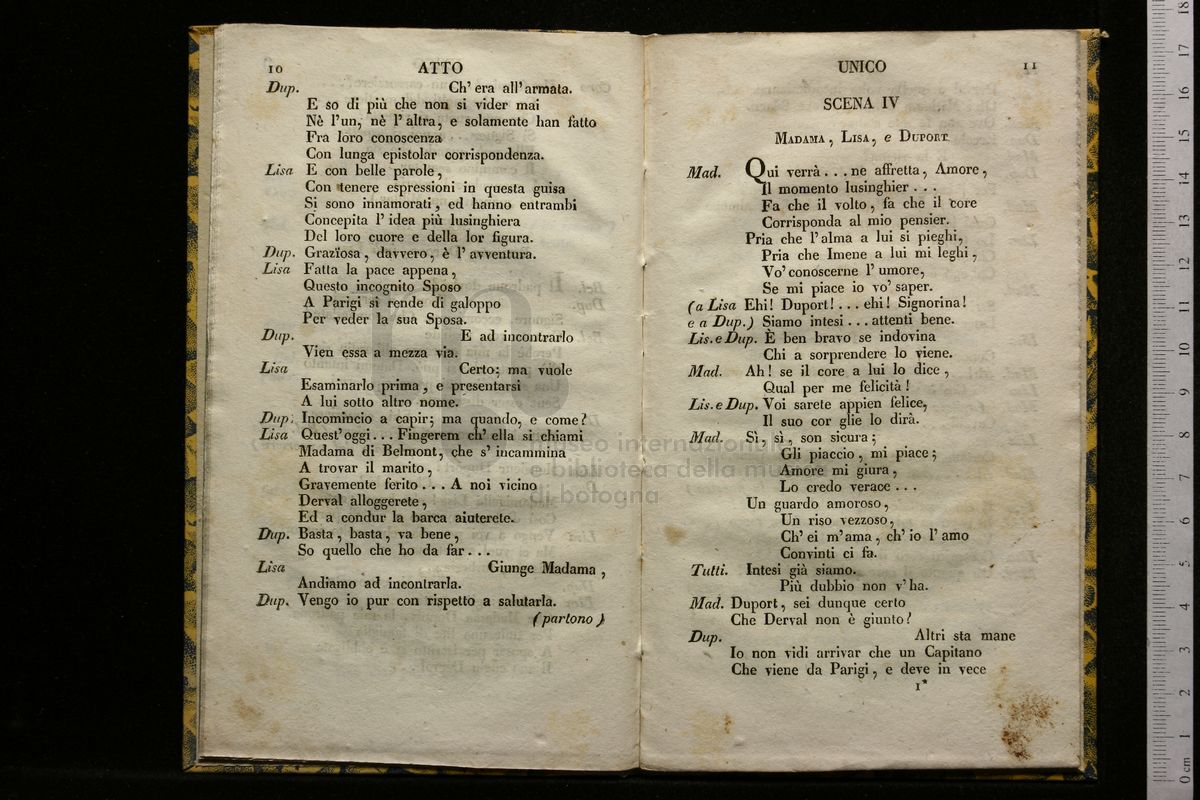 10 ATTO
Dup. Ch' era all' armata.
E so di più che non si vider mai
Nè l' un, nè l' altra, e solamente han fatto
Fra loro conoscenza
Con lunga epistolar corrispondenza.
Lisa E con belle parole,
Con tenere espressioni in questa guisa
Si sono innamorati, ed hanno entrambi
Concepita l' idea più lusinghiera
Del loro cuore e della lor figura.
Dup. Grazïosa, davvero, è l' avventura.
Lisa Fatta la pace appena,
Questo incognito Sposo
A Parigi si rende di galoppo
Per veder la sua Sposa.
Dup. E ad incontrarlo
Vien essa a mezza via.
Lisa Certo; ma vuole
Esaminarlo prima, e presentarsi
A lui sotto altro nome.
Dup. Incomincio a capir; ma quando, e come?
Lisa Quest' oggi... Fingerem ch' ella si chiami
Madama di Belmont, che s' incammina
A trovar il marito,
Gravemente ferito... A noi vicino
Derval alloggerete,
Ed a condur la barca aiuterete.
Dup. Basta, basta, va bene,
So quello che ho da far...
Lisa Giunge Madama,
Andiamo ad incontrarla.
Dup. Vengo io pur con rispetto a salutarla.
(partono)
UNICO 11
SCENA IV
MADAMA, LISA, e DUPORT
Mad. Qui verrà... ne affretta, Amore,
Il momento lusinghier...
Fa che il volto, fa che il core
Corrisponda al mio pensier.
Pria che l' alma a lui si pieghi,
Pria che Imene a lui mi leghi,
Vo' conoscerne l' umore,
Se mi piace io vo' saper.
(a Lisa Ehi! Duport!... ehi! Signorina!
e a Dup.) Siamo intesi... attenti bene.
Lis. e Dup. È ben bravo se indovina
Chi a sorprendere lo viene.
Mad. Ah! se il core a lui lo dice,
Qual per me felicità!
Lis. e Dup. Voi sarete appien felice,
Il suo cor glie lo dirà.
Mad. Sì, sì, son sicura;
Gli piaccio, mi piace;
Amore mi giura,
Lo credo verace...
Un guardo amoroso,
Un riso vezzoso,
Ch' ei m' ama, ch' io l' amo
Convinti ci fa.
Tutti. Intesi già siamo.
Più dubbio non v' ha.
Mad. Duport, sei dunque certo
Che Derval non è giunto?
Dup. Altri sta mane
Io non vidi arrivar che un Capitano
Che viene da Parigi, e deve in vece
1*
museo internazionale
e biblioteca della mu
di bologna
0 cm 1 2 3 4 5 6 7 8 9 10 11 12 13 14 15 16 17 18